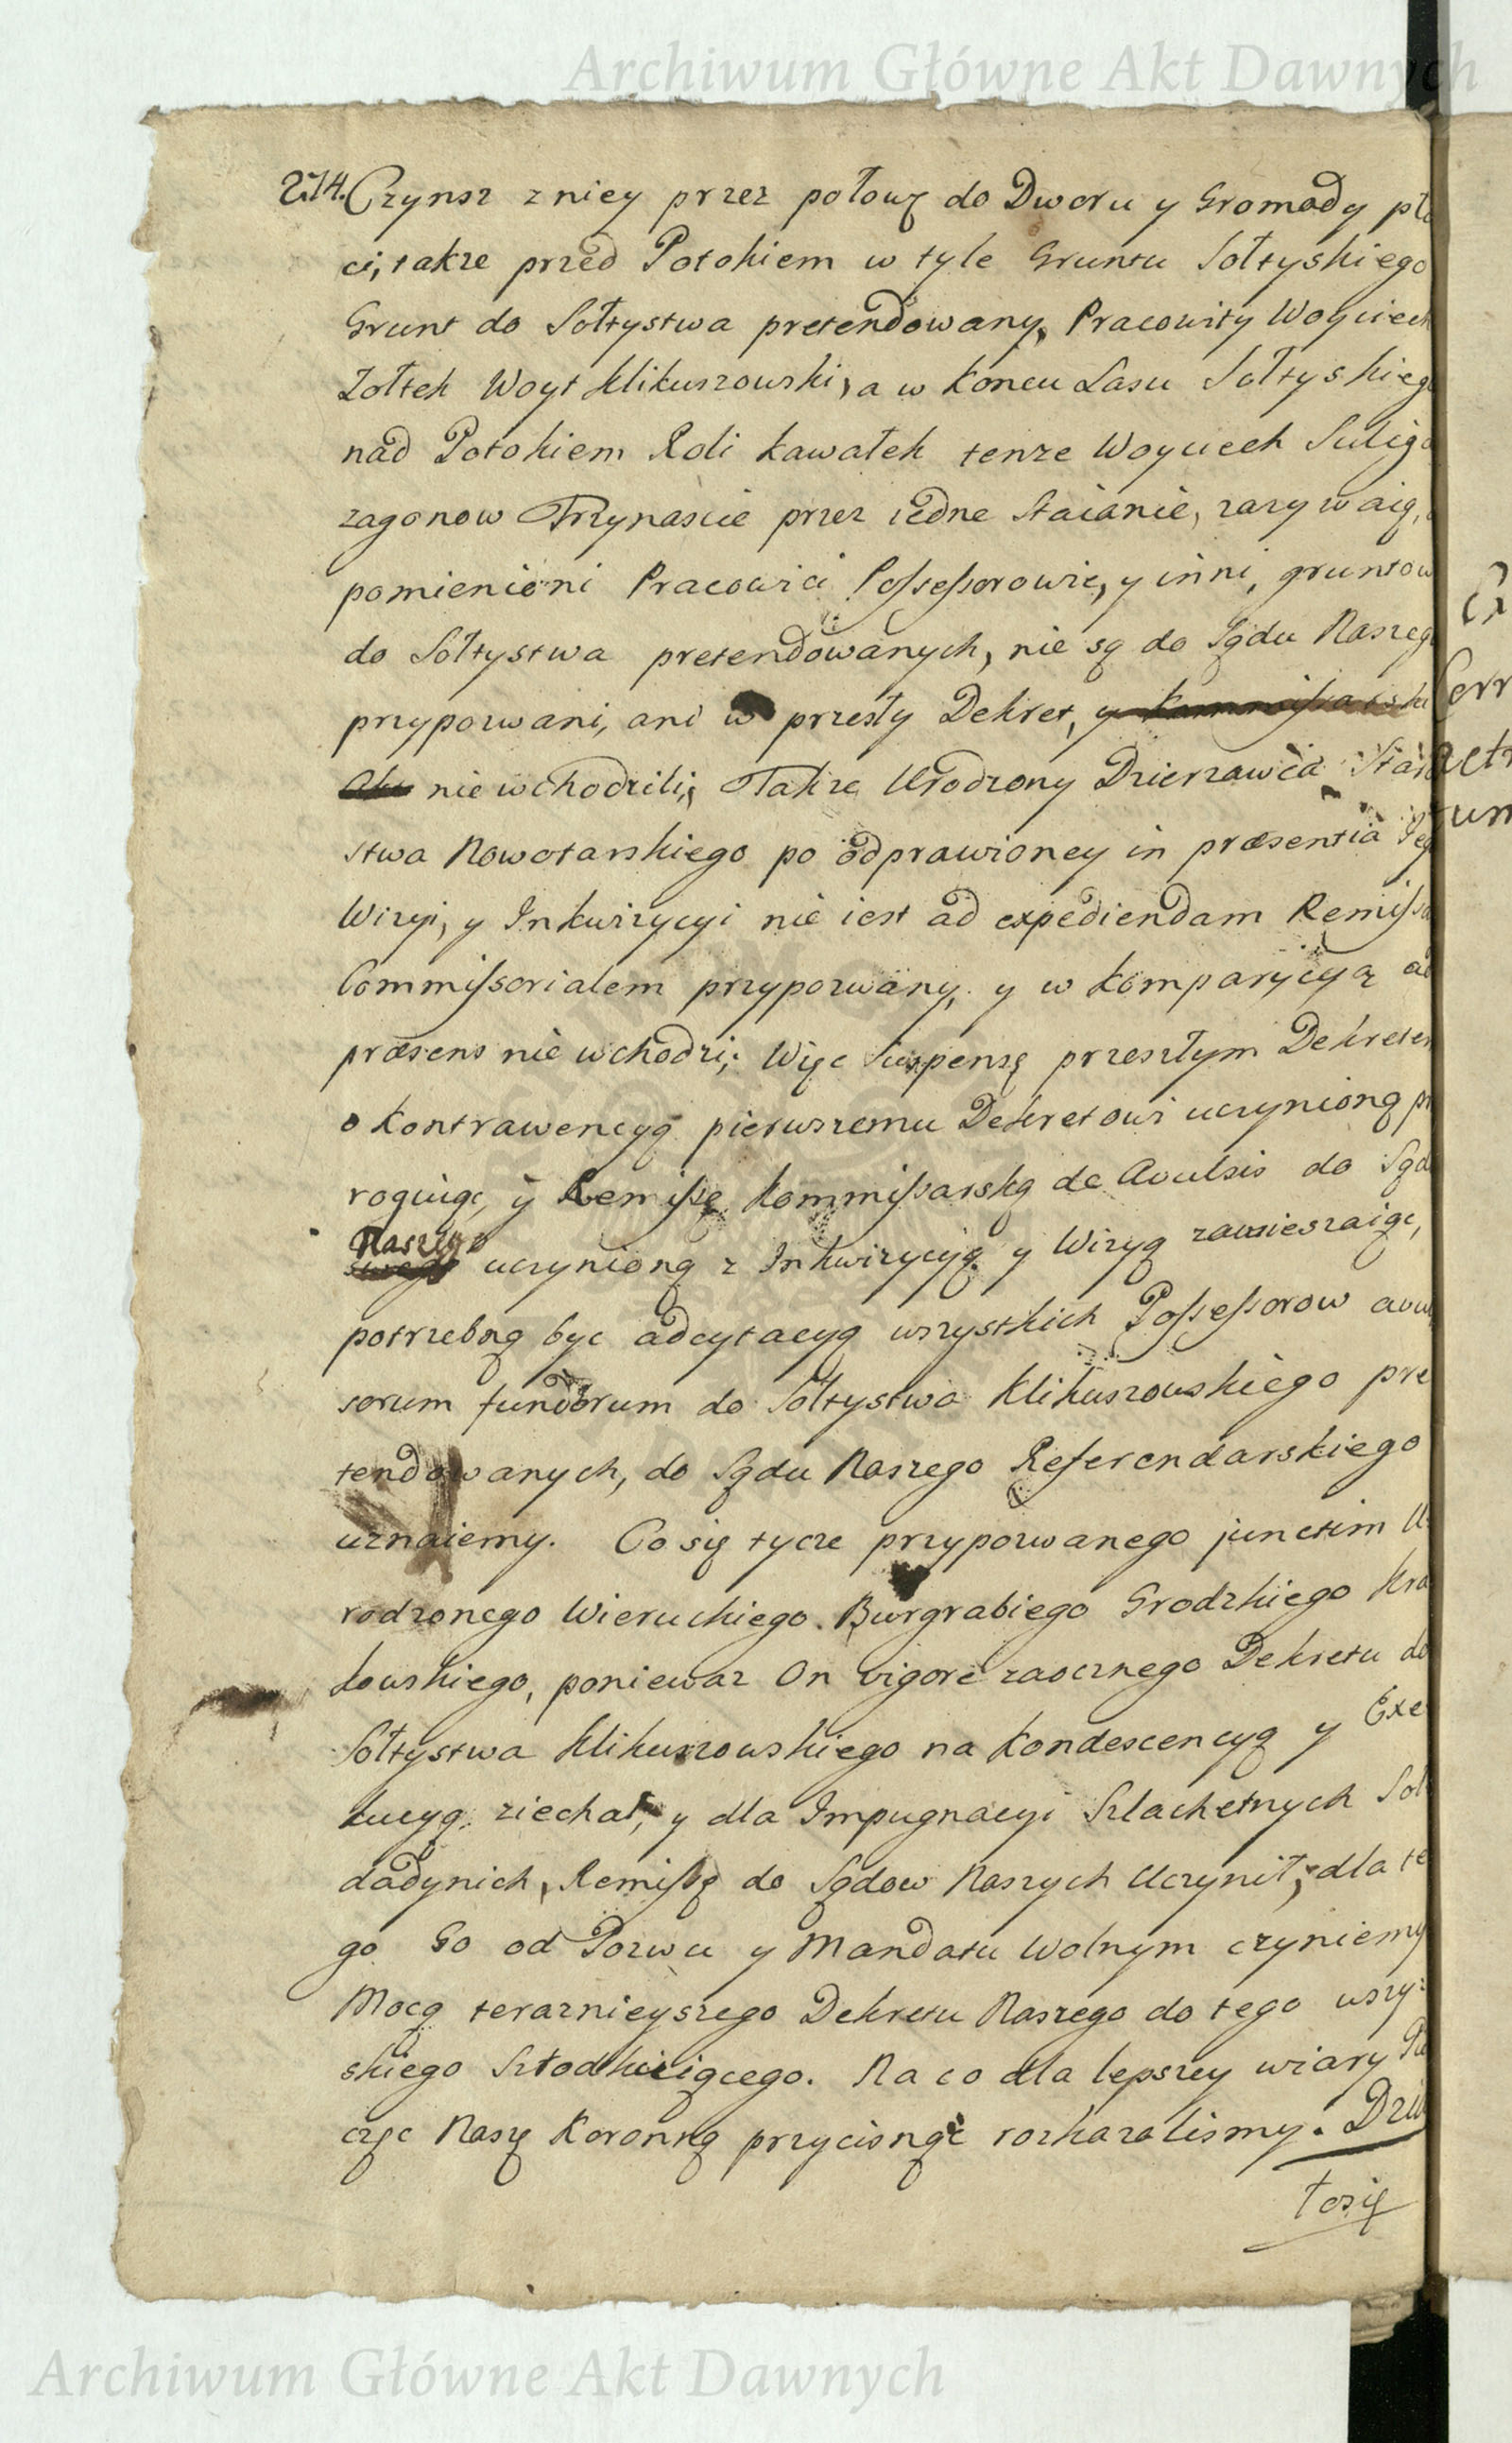 Archiwum Główne Akt Dawnych
274. Czynsz z niey przez połowę do Dworu y Gromady pła
ci, także przed Potokiem w tyle Gruntu Sołtyskiego
Grunt do Sołtystwa pretendowany, Pracowity Woyciech
Zołtek Woyt Klikuszowski, a w Koncu Lasu Sołtyskieg
nad Potokiem Roli kawałek tenze Woyciech Suliga
zagonow Trzynascie przez iedne Staianie, zazywaią,
pomienieni Pracowici Possessorowie, y inni, gruntow
do Sołtystwa pretendowanych, nie są do Sądu Naszeg
przypozwani, ani w przeszły Dekret, y Kommissarski
Akt nie wchodzili; Także Urodzony Dzierzawca Staro
stwa Nowotarskiego po odprawioney in præsentia Jeg
Wizyi, y Inkwizycyi nie iest ad expediendam Remissa
Commissorialem przypozwany, y w Komparycyą ad
præsens nie wchodzi; Więc Suspensę przeszłym Dekretem
o Kontrawencyą pierwszemu Dekretowi uczynioną pr
roguiąc, y Remissę Kommissarską de Avulsis do Sąd
Naszego
swego uczynioną z Inkwizycyą y Wizyą zawieszaiąc,
potrzebną byc adcytacyą wszystkich Possessorow avul
sorum fundorum do Sołtystwa Klikuszowskiego pre
tendowanych, do Sądu Naszego Referendarskiego
uznaiemy. Co się tycze przypozwanego junctim U
rodzonego Wieruckiego Burgrabiego Grodzkiego Kra
kowskiego, poniewaz On vigore zaocznego Dekretu do
Sołtystwa Klikuszowskiego na Kondescencyą y Exe
kucyą ziechał, y dla Impugnacyi Szlachetnych Soł
dadynich, Remissę do Sądow Naszych Uczynił, dla te
go Go od Pozwu y Mandatu Wolnym czyniemy
Mocą teraznieyszego Dekretu Naszego do tego wszy
skiego Szłodkuiącego. Na co dla lepszey wiary Pie
częc Naszę Koronną przycisnąć rozkazalismy. Dzia
łosię
Archiwum Główne Akt Dawnych